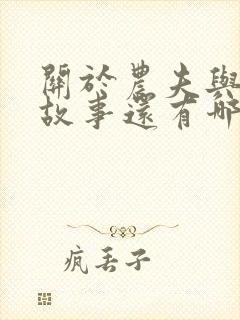 關於農夫與
故事還有哪
疯丢子